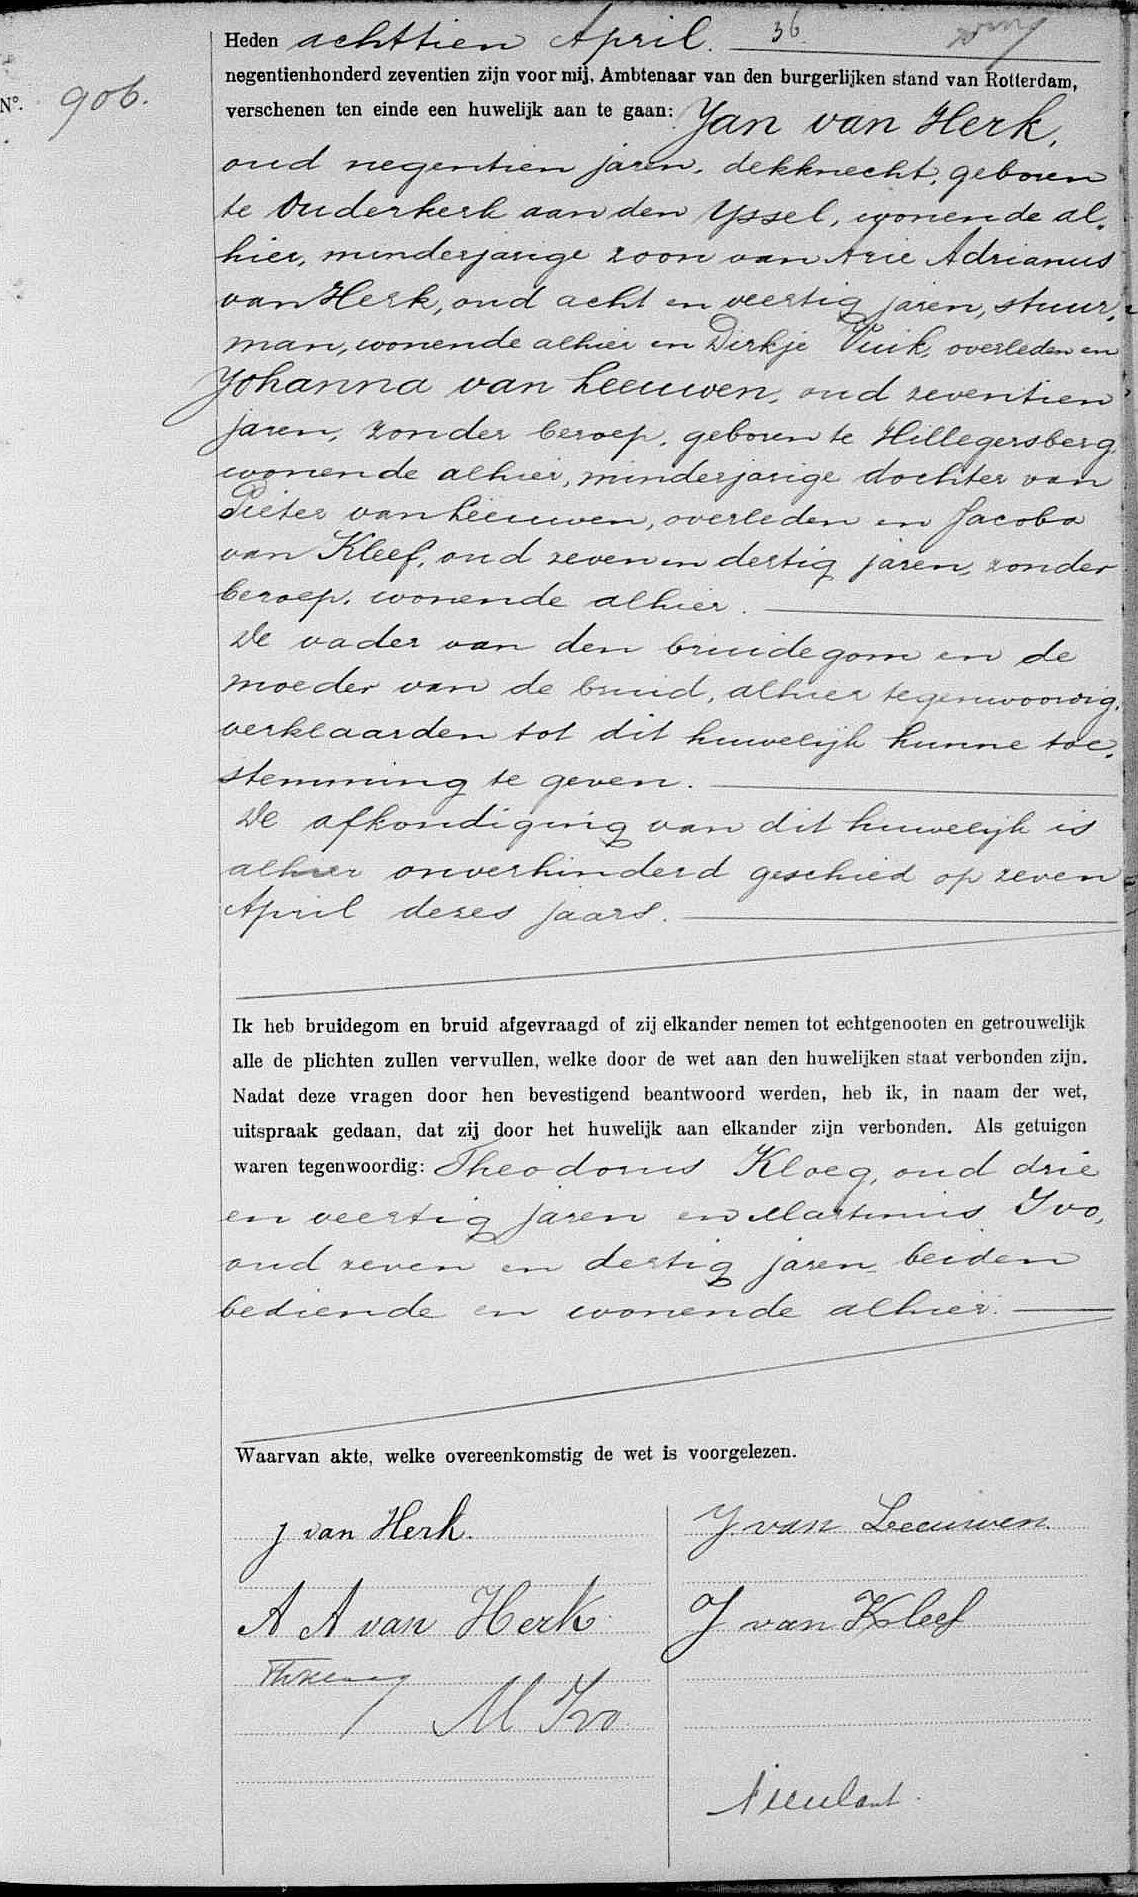 Heden achttien April. 36
negentienhonderd zeventien zijn voor mij, Ambtenaar van den burgerlijken stand van Rotterdam,
N°. 906.
verschenen ten einde een huwelijk aan te gaan: Jan van Herk,
oud negentien jaren, dekknecht, geboren
te Ouderkerk aan den Yssel, wonende al„
hier, minderjarige zoon van Arie Adrianus
van Herk, oud acht en veertig jaren, stuur„
man, wonende alhier en Dirkje Puik, overleden en
Johanna van Leeuwen, oud zeventien
jaren, zonder beroep, geboren te Hillegersberg
wonende alhier, minderjarige dochter van
Pieter van Leeuwen, overleden en Jacoba
van Kleef, oud zeven en dertig jaren, zonder
beroep, wonende alhier.
De vader van den bruidegom en de
moeder van de bruid, alhier tegenwoordig,
verklaarden tot dit huwelijk hunne toe„
stemming te geven.
De afkondiging van dit huwelijk is
alhier onverhinderd geschied op zeven
April dezes jaars.
Ik heb bruidegom en bruid afgevraagd of zij elkander nemen tot echtgenooten en getrouwelijk
alle de plichten zullen vervullen, welke door de wet aan den huwelijken staat verbonden zijn.
Nadat deze vragen door hen bevestigend beantwoord werden, heb ik, in naam der wet,
uitspraak gedaan, dat zij door het huwelijk aan elkander zijn verbonden. Als getuigen
waren tegenwoordig: Theodorus Kloeg, oud drie
en veertig jaren en Martinus Ivo,
oud zeven en dertig jaren beiden
bediende en wonende alhier.
Waarvan akte, welke overeenkomstig de wet is voorgelezen.
J van Herk.
J van Leeuwen.
A A van Herk
J van Kleef
M Ivo